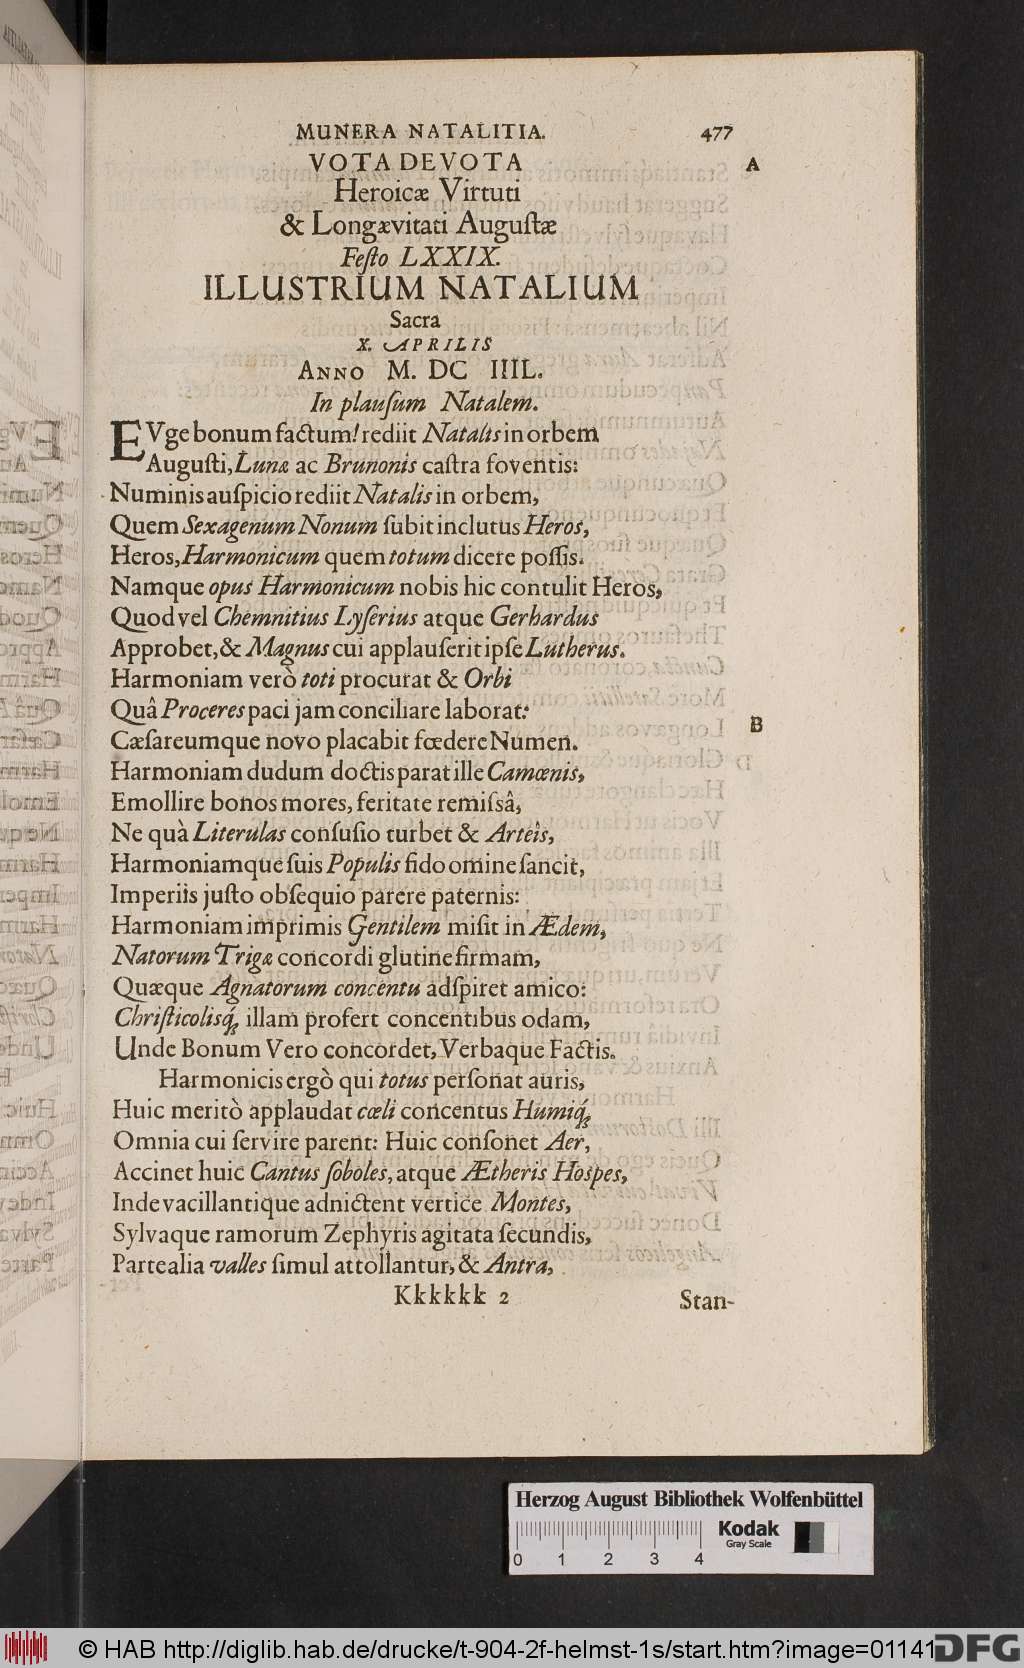 MUNERA NATALITIA. 477
VOTA DEVOTA A
Heroicæ Virtuti
& Longævitati Auguſtæ
Feſto LXXIX.
ILLUSTRIUM NATALIUM
Sacra
X. APRILIS
ANNO M. DC IIIL.
In plauſum Natalem.
EVge bonum factum! rediit Natalis in orbem
Auguſti, Lunæ ac Brunonis caſtra foventis:
Numinis auſpicio rediit Natalis in orbem,
Quem Sexagenum Nonum ſubit inclutus Heros,
Heros, Harmonicum quem totum dicere poſſis.
Namque opus Harmonicum nobis hic contulit Heros,
Quod vel Chemnitius Lyſerius atque Gerhardus
Approbet, & Magnus cui applauſerit ipſe Lutherus.
Harmoniam verò toti procurat & Orbi
Quâ Proceres paci jam conciliare laborat:
B
Cæſareumque novo placabit fœdere Numen.
Harmoniam dudum doctis parat ille Camœnis,
Emollire bonos mores, feritate remiſsâ,
Ne quà Literulas conſuſio turbet & Arteis,
Harmoniamque ſuis Populis fido omine ſancit,
Imperiis juſto obſequio parere paternis:
Harmoniam imprimis Gentilem miſit in Ædem,
Natorum Trigæ concordi glutine firmam,
Quæque Agnatorum concentu adſpiret amico:
Chriſticolisq́ illam profert concentibus odam,
Unde Bonum Vero concordet, Verbaque Factis.
Harmonicis ergò qui totus perſonat auris,
Huic meritò applaudat cœli concentus Humiq́
Omnia cui ſervire parent: Huic conſonet Aer,
Accinet huic Cantus ſoboles, atque Ætheris Hospes,
Inde vacillantique adnictent vertice Montes,
Sylvaque ramorum Zephyris agitata ſecundis,
Partealia valles ſimul attollantur, & Antra,
Kkkkkk 2 Stan-
Herzog August Bibliothek Wolfenbüttel
Kodak
Gray Scale
0 1 2 3 4
© HAB http://diglib.hab.de/drucke/t-904-2f-helmst-1s/start.htm?image=01141
DFG